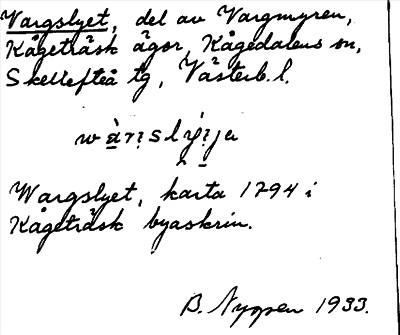 Vargslyet, del av Vargmyren,
Kågeträsk ägor, Kågedalens sn,
Skellefteå tg, Västerb. l.
Wargslyet, karta 1794 i
Kågeträsk byaskrin.
B. 1933.